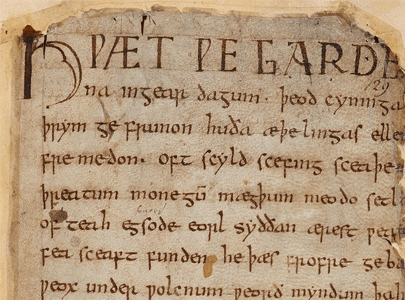 HǷÆT ǷE GARDE
na ingear dagum. þeod cyninga
þrym ge frunon huða æþelingas elle
fre medon. oft scyld scefing sceaþe
þreatum monegū mægþum meodo setl
of teah egsode eorl syððan ærest
fea sceaft funden he þæs frofre geba
ƿeox under ƿolcnum ƿeorð myndum